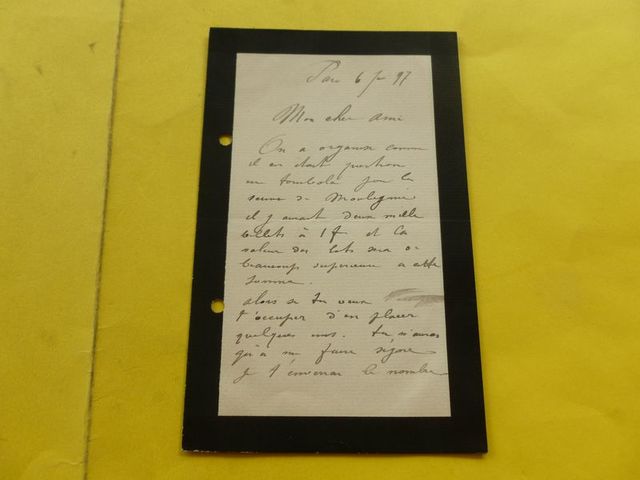 Paris 6 Jr 97
Mon cher ami
On a organisé comme
il en était question
une tombola pour la
veuve de
il y aurait deux mille
billets à 1 f et la
valeur des lots sera
beaucoup supérieure a cette
somme.
alors si tu veux
t'occuper d'en placer
quelques uns. tu n'auras
qu'à me faire
je t'enverrai le nombre